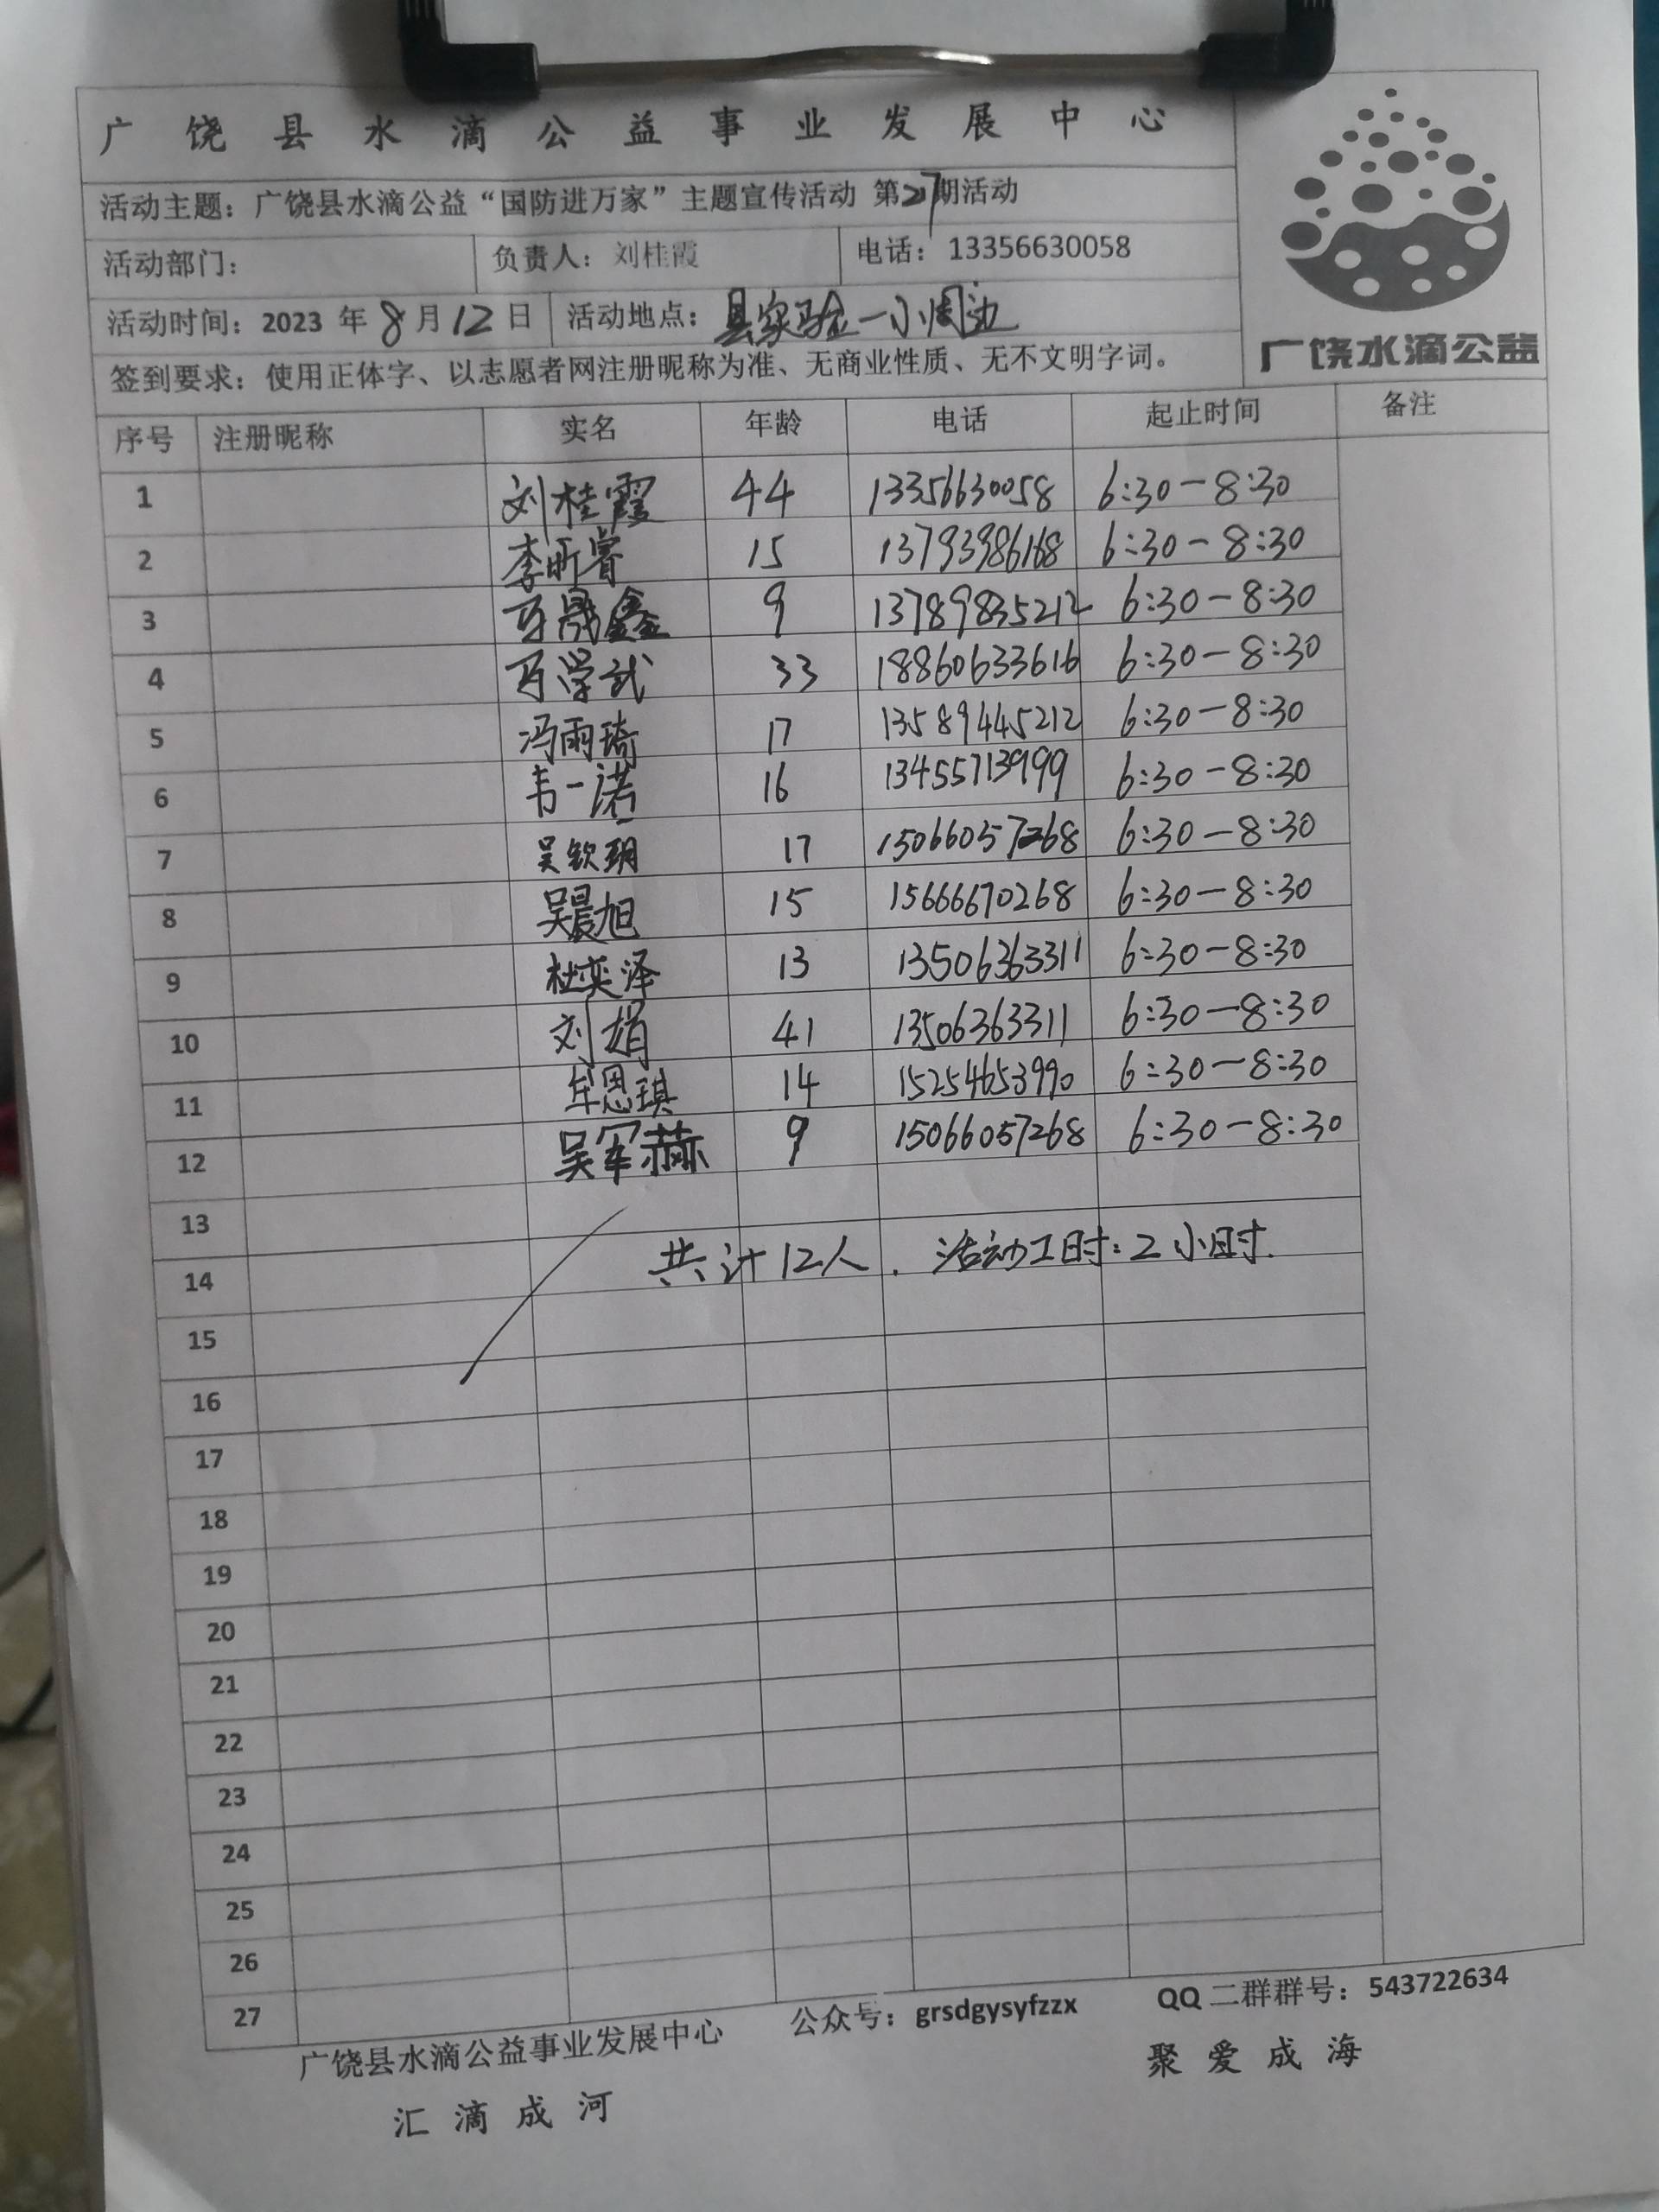 广饶县水滴公益事业发展中心
活动主题：广饶县水滴公益“国防进万家”主题宣传活动 第27期活动
活动部门： 负责人：刘桂霞 电话：13356630058
活动时间：2023 年 8 月 12 日 活动地点：县实验一小周边
签到要求：使用正体字、以志愿者网注册昵称为准、无商业性质、无不文明字词。
广饶水滴公益
序号 注册昵称 实名 年龄 电话 起止时间 备注
1 刘桂霞 44 13356630058 6:30－8:30
2 李昕睿 15 13793986168 6:30－8:30
3 鑫 9 13789835212 6:30－8:30
4 学武 33 18860633616 6:30－8:30
5 冯雨琦 17 13589445212 6:30－8:30
6 韦一诺 16 13455713999 6:30－8:30
7 吴钦玥 17 15066057268 6:30－8:30
8 吴晨旭 15 15666670268 6:30－8:30
9 杜奕泽 13 13506363311 6:30－8:30
10 刘娟 41 13506363311 6:30－8:30
11 牟恩琪 14 15254653990 6:30－8:30
12 吴军赫 9 15066057268 6:30－8:30
13
共计12人．活动工时：2小时.
14
15
16
17
18
19
20
21
22
23
24
25
26
27
广饶县水滴公益事业发展中心 公众号：grsdgysyfzzx QQ 二群群号：543722634
汇滴成河 聚爱成海